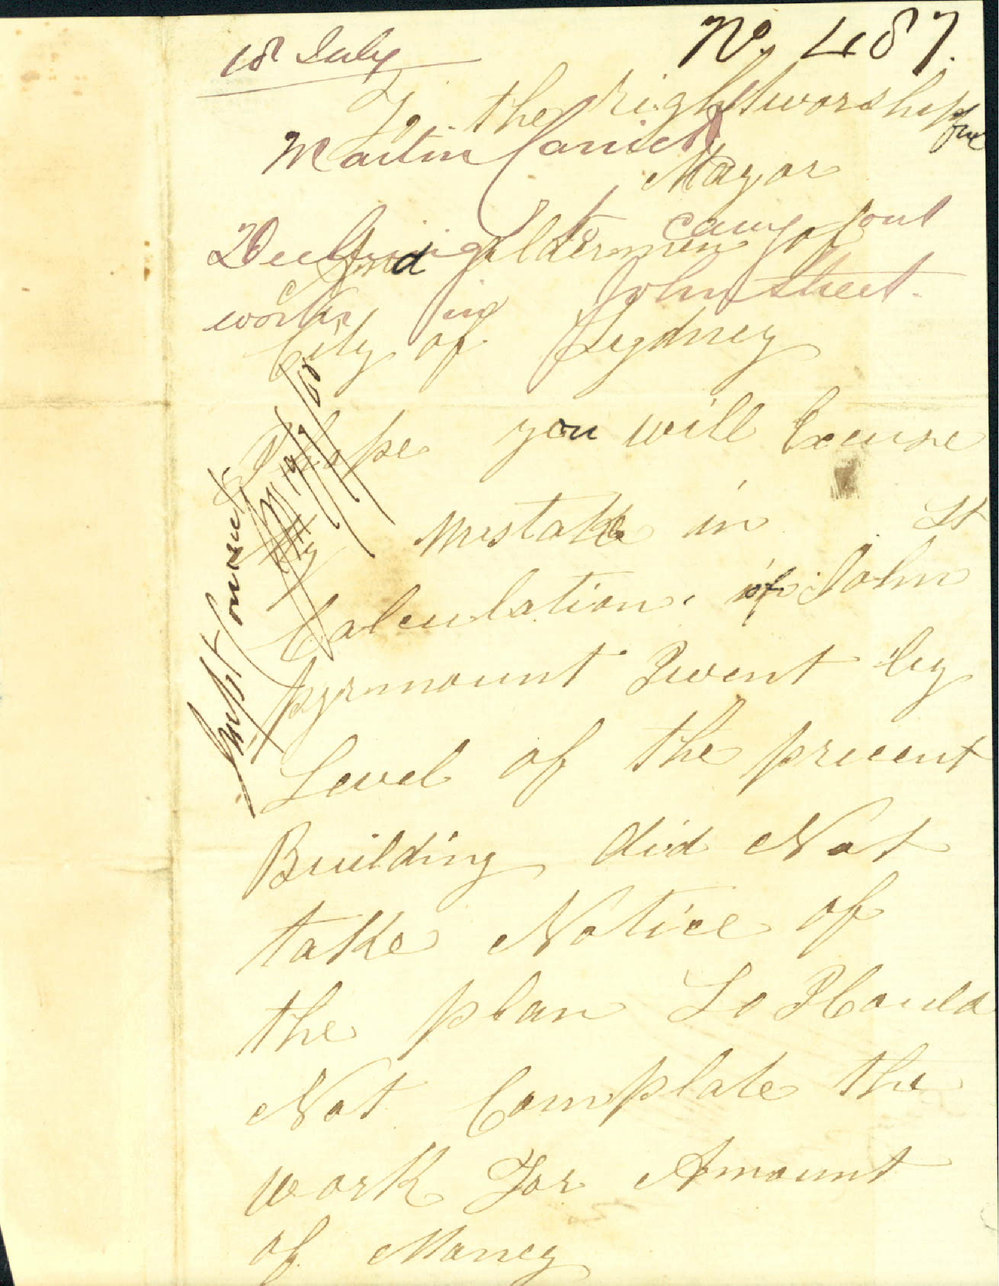 No. 487.
18 July
To the right worshipful
Martin
Mayor
Declining to carry out
And aldermen of
works in John Street.
City of Sydney
I hope you will Excuse
My mistake in
Calculation, of John St
pyrmount I went by
Level of the present
Building did Not
take Notice of
the plan So I Could
Not Complate the
work For Amount
of Money
19/7/68